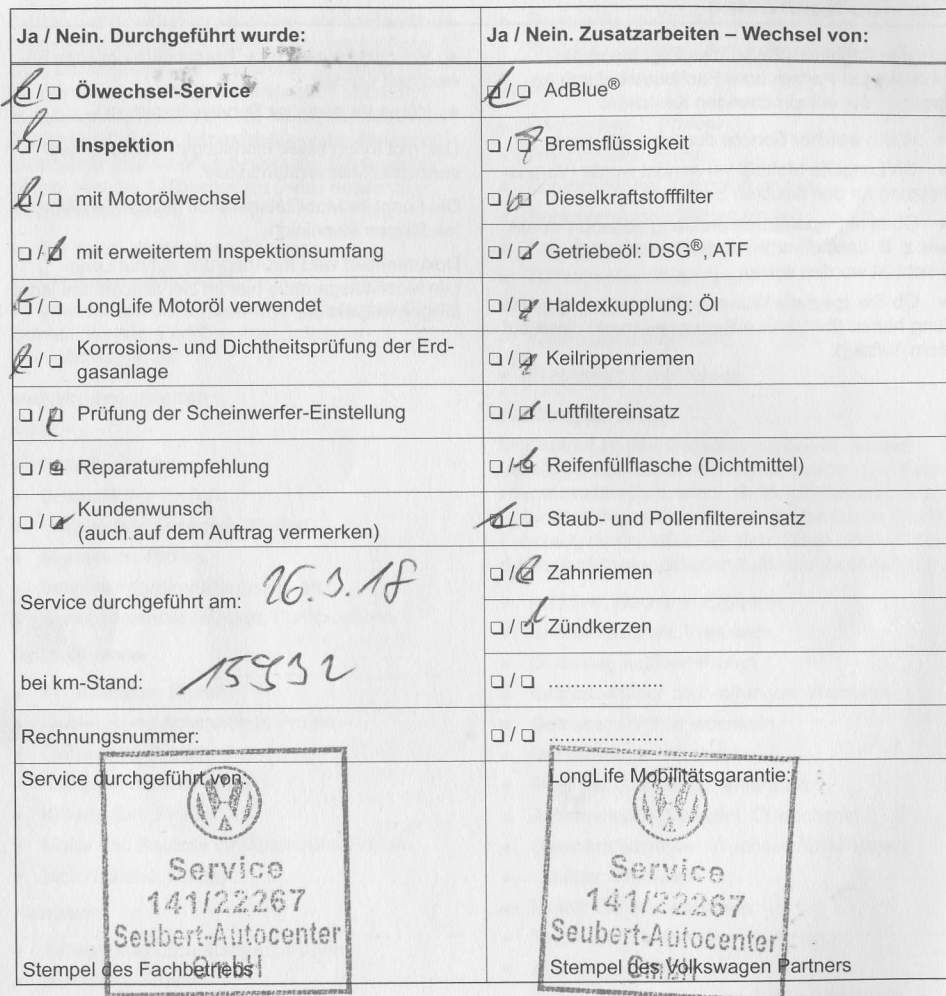 Ja / Nein. Durchgeführt wurde:
❏ / ❏ Ölwechsel-Service
❏ / ❏ Inspektion
❏ / ❏ mit Motorölwechsel
❏ / ❏ mit erweitertem Inspektionsumfang
❏ / ❏ LongLife Motoröl verwendet
❏ / ❏ Korrosions- und Dichtheitsprüfung der Erd-
gasanlage
❏ / ❏ Prüfung der Scheinwerfer-Einstellung
❏ / ❏ Reparaturempfehlung
❏ / ❏ Kundenwunsch
(auch auf dem Auftrag vermerken)
Service durchgeführt am: 26.3.18
bei km-Stand: 15932
Rechnungsnummer:
Service durchgeführt von:
Service
141/22267
Seubert-Autocenter
GmbH
Stempel des Fachbetriebs
Ja / Nein. Zusatzarbeiten – Wechsel von:
❏ / ❏ AdBlue®
❏ / ❏ Bremsflüssigkeit
❏ / ❏ Dieselkraftstofffilter
❏ / ❏ Getriebeöl: DSG®, ATF
❏ / ❏ Haldexkupplung: Öl
❏ / ❏ Keilrippenriemen
❏ / ❏ Luftfiltereinsatz
❏ / ❏ Reifenfüllflasche (Dichtmittel)
❏ / ❏ Staub- und Pollenfiltereinsatz
❏ / ❏ Zahnriemen
❏ / ❏ Zündkerzen
❏ / ❏ ......................
❏ / ❏ ......................
LongLife Mobilitätsgarantie:
Service
141/22267
Seubert-Autocenter
GmbH
Stempel des Volkswagen Partners